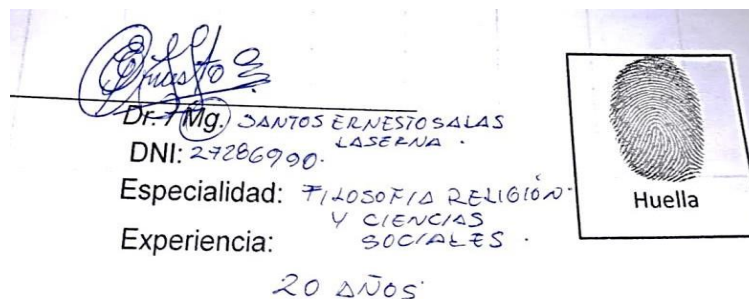 Ernesto S
Dr. / Mg. SANTOS ERNESTO SALAS
LASERNA.
DNI: 27286990.
Especialidad: FILOSOFIA RELIGIÓN
Y CIENCIAS
Experiencia: SOCIALES.
Huella
20 AÑOS